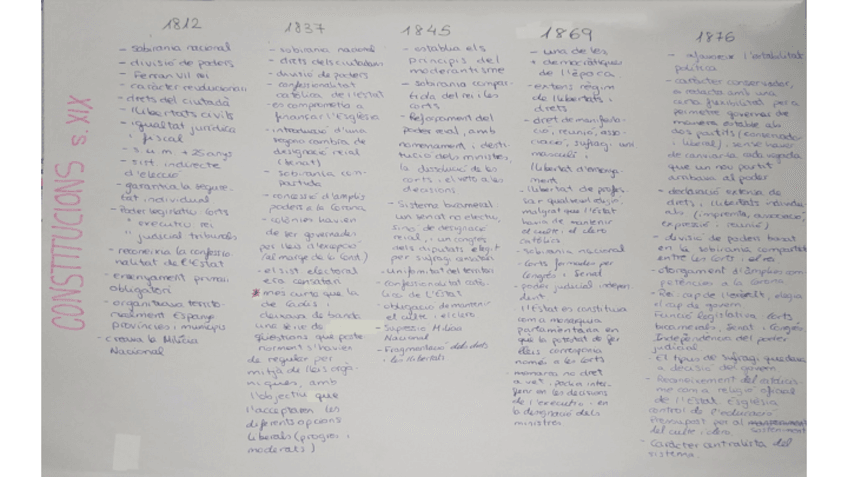 CONSTITUCIONS S. XIX
1812
- sobirania nacional
- divisió de poders
- Ferran VII rei
- caràcter revolucionari
- drets del ciutadà
- llibertats civils
- igualtat jurídica
" fiscal
- s.u.m. +25 anys
- sist. indirecte
d'elecció
- garantia la segure-
tat individual
- Poder legislatiu: corts
" executiu rei
" judicial tribunals
- reconeixia la confessio-
nalitat de l'Estat
- ensenyament primari
obligatori
- organitzava territo-
rialment Espanya
províncies i municipis
- creava la Milícia
Nacional
1837
- sobirania nacional
- drets dels ciutadans
- divisió de poders
- confessionalitat
catòlica de l'Estat
- es comprometia a
finançar l'Església
- introducció d'una
segona cambra de
designació reial
(Senat)
- sobirania com-
partida
- concessió d'amplis
poders a la Corona
- colònies havien
de ser governades
per lleis d'excepció
(al marge de la Const)
- el sist. electoral
era censatari
* més curta que la
de Cadis i
deixava de banda
una sèrie de
qüestions que poste-
riorment s'havien
de regular per
mitjà de lleis orgà-
niques, amb
l'objectiu que
l'acceptaren les
diferents opcions
liberals (progres. i
moderats)
1845
- establia els
principis del
moderantisme
- sobirania compar-
tida del rei i les
corts
- Reforçament del
poder reial, amb
nomenament i desti-
tució dels ministres,
la dissolució de les
corts i el veto a les
decisions
- Sistema bicameral:
un senat no electiu,
sinó de designació
reial, i un congrés
dels diputats elegit
per sufragi censatari
- uniformitat del territori
- confessionalitat catò-
lica de l'Estat
- obligació de mantenir
el culte i el clero
- Supressió Milícia
Nacional
- Fragmentació dels drets
i les llibertats
1869
- una de les
+ democràtiques
de l'època
- extens règim
de llibertats i
drets
- dret de manifesta-
ció, reunió, asso-
ciació, sufragi uni
masculí i
llibertat d'ensenya-
ment
- llibertat de profes-
sar qualsevol religió,
malgrat que l'Estat
havia de mantenir
el culte i el clero
catòlics
- sobirania nacional
- corts formades per
Congrés i Senat
- poder judicial indepen
dent
- l'Estat es constituïa
com a monarquia
parlamentària en
que la potestat de fer
lleis corresponia
només a les corts
- monarca no dret
a vet. podia inter-
ferir en les decisions
de l'executiu en
la designació dels
ministres
1876
- afavorir l'estabilitat
política
- caràcter conservador,
es redacta amb una
certa flexibilitat per a
permetre governar de
manera estable als
dos partits (conservador
i liberal), sense haver
de canviar-la cada vegada
que un nou partit
arribava al poder
- declaració extensa de
drets i llibertats individu
als (impremta, associació,
expressió i reunió)
- divisió de poders basat
en la sobirania compartida
entre les corts i el rei
- atorgament d'àmplies com-
petències a la Corona
- Rei: cap de l'exèrcit, elegia
el cap de govern
Funció legislativa: corts
bicamerals, Senat i Congrés
Independència del poder
judicial
- El tipus de sufragi quedava
a decisió del govern
- Reconeixement del catolicis-
me com a religió oficial
de l'Estat. Església
control de l'educació
Pressupost per al sosteniment
del culte i clero.
- Caràcter centralista del
sistema.